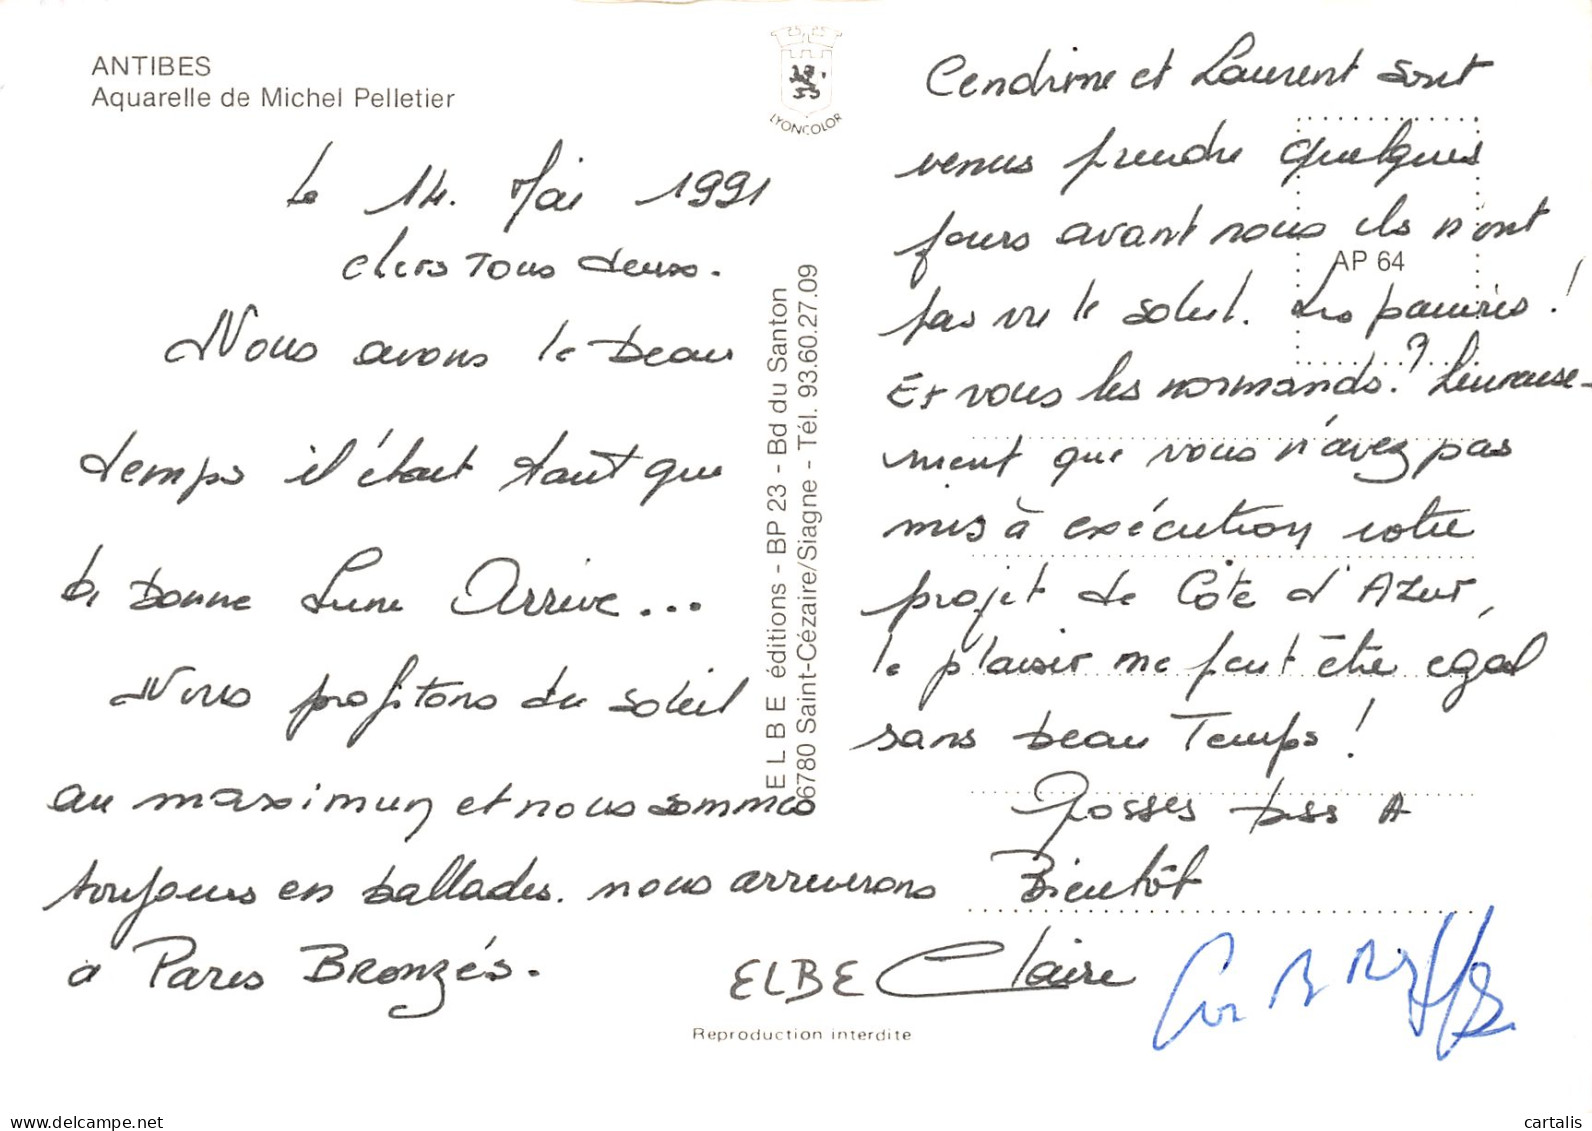 ANTIBES
Aquarelle de Michel Pelletier
LYONCOLOR
le 14. Mai 1991
chers Tous deux.
Nous avons le beau
temps il était tant que
la Bonne Lune Arrive...
Nous profitons du soleil
au maximum et nous sommes
toujours en ballades. nous arriverons
à Paris Bronzés.
ELBE éditions - BP 23 - Bd du Santon
6780 Saint-Cézaire/Siagne - Tél. 93.60.27.09
Cendrine et Laurent sont
venus prendre quelques
jours avant nous ils n'ont
pas vu le soleil. Les pauvres!
AP 64
Et vous les normands? heureuse-
ment que vous n'avez pas
mis à exécution votre
projet de Côte d'Azur,
le plaisir ne peut être égal
sans beau Temps!
Grosses bises A
Bientôt
Claire
ELBE
Reproduction interdite
delcampe.net
cartalis